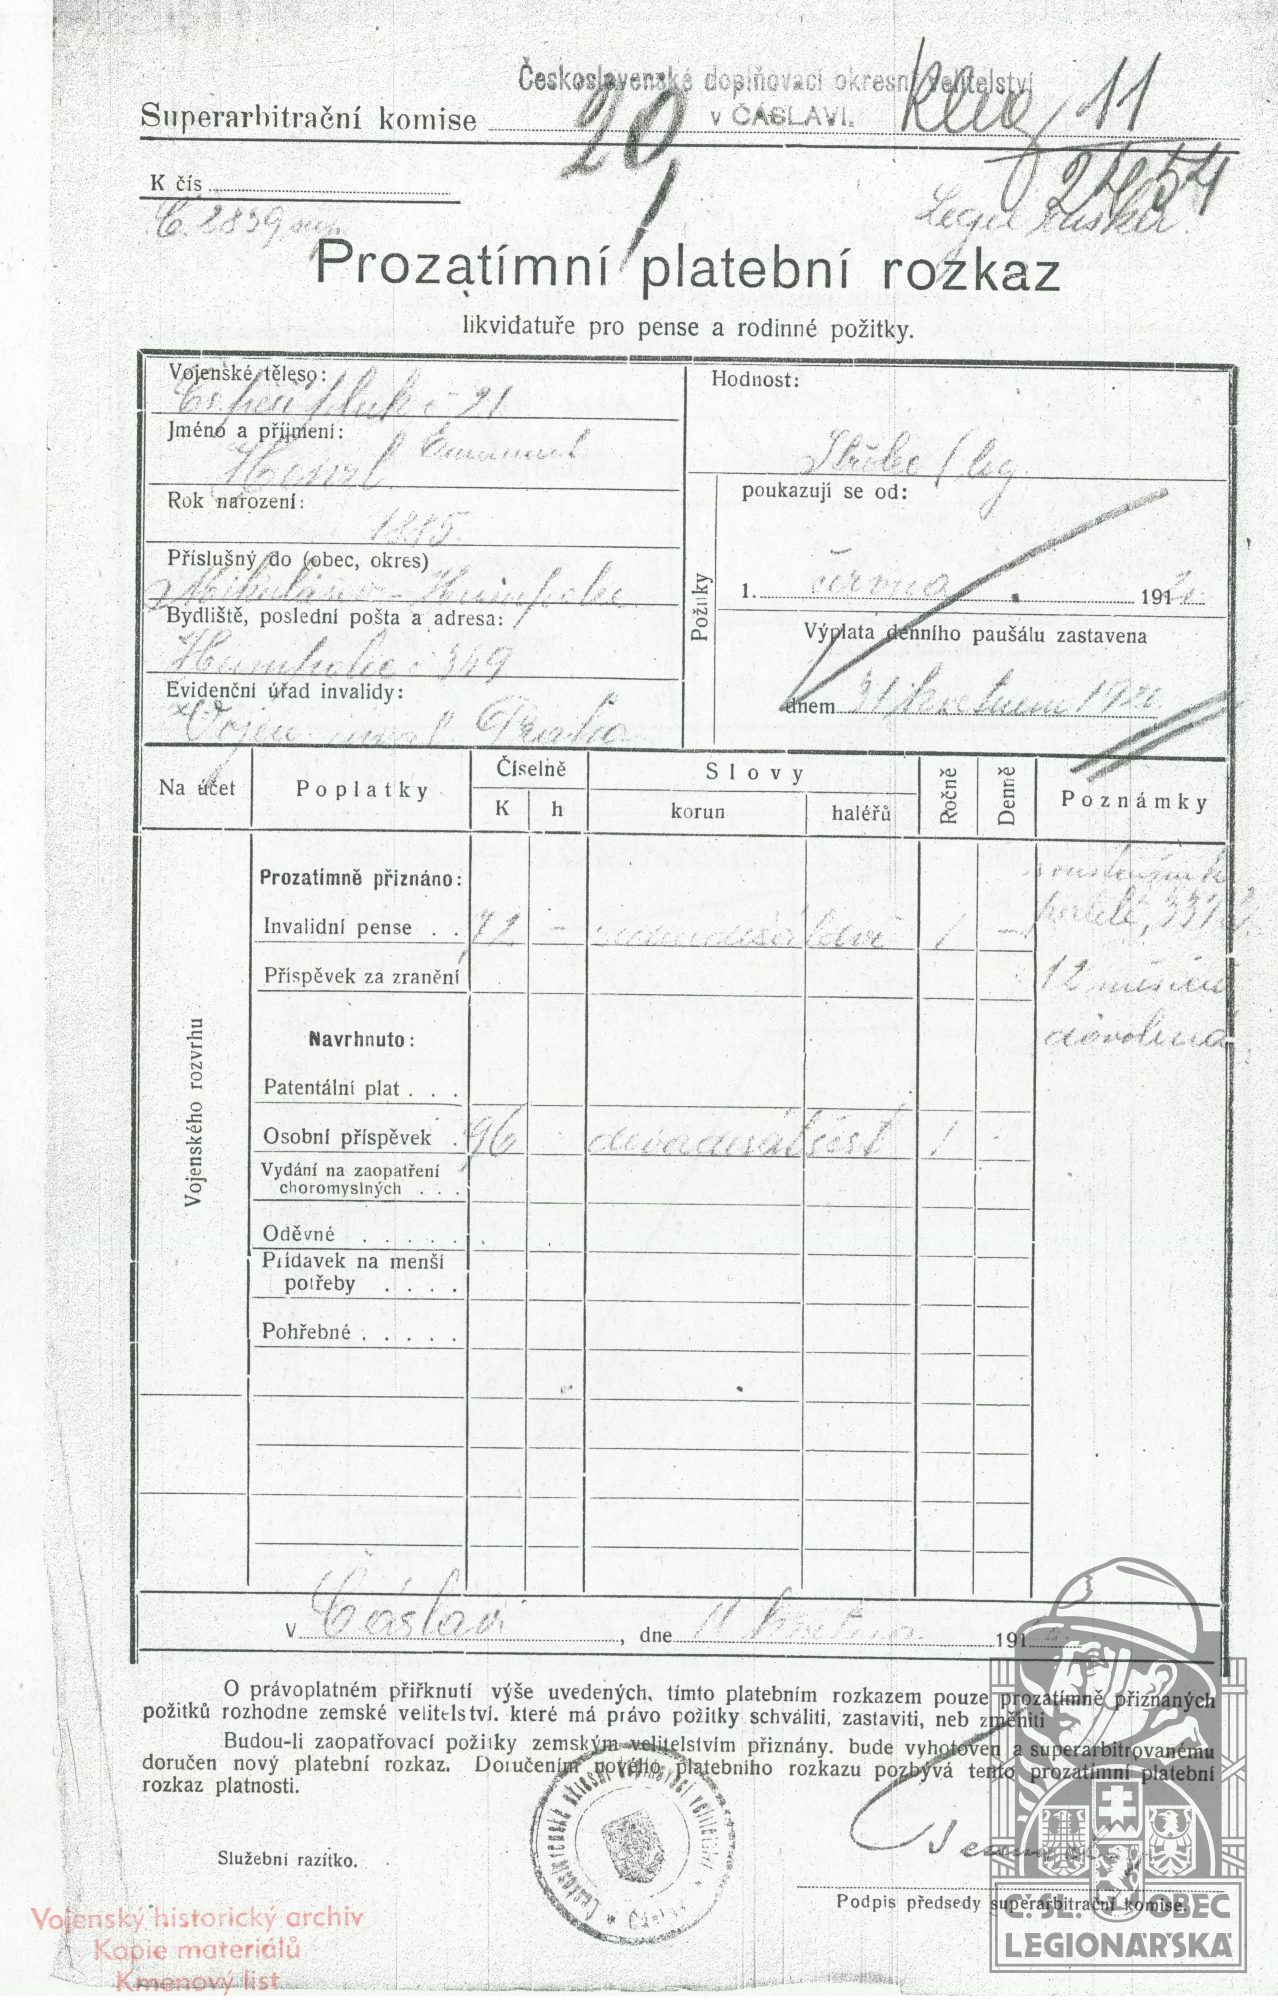 Československé doplňovací okresní velitelství
v ČÁSLAVI.
Superarbitrační komise
20/
11
2454
K čís
Č. 2839 sup.
Legie ruská
Prozatímní platební rozkaz
likvidatuře pro pense a rodinné požitky.
Vojenské těleso:
Čs. pěší pluk č 21
Hodnost:
Střelec / leg
Jméno a příjmení:
Hamrl Emanuel
Rok narození:
1885
Příslušný do (obec, okres)
Humpolec
Bydliště, poslední pošta a adresa:
Humpolec č 349
Evidenční úřad invalidy:
Vojen. Praha
Požitky
poukazují se od:
1. června 191
Výplata denního paušálu zastavena
dnem 31 května 1920
Na účet
Poplatky
Číselně
K
h
Slovy
korun
haléřů
Ročně
Denně
Poznámky
Vojenského rozvrhu
Prozatímně přiznáno:
Invalidní pense . . 72 - sedmdesátdvě 1 -
Příspěvek za zranění
Navrhnuto:
Patentální plat . . .
Osobní příspěvek . 96 - devadesátšest 1 -
Vydání na zaopatření
choromyslných . . .
Oděvné . . . . . .
Přídavek na menší
potřeby . . . .
Pohřebné . . . . .
12 měsíců
dovolená
v Čáslavi, dne 11 května 191
O právoplatném přiřknutí výše uvedených, tímto platebním rozkazem pouze prozatímně přiznaných
požitků rozhodne zemské velitelství. které má právo požitky schváliti, zastaviti, neb změniti
Budou-li zaopatřovací požitky zemským velitelstvím přiznány. bude vyhotoven a superarbitrovanému
doručen nový platební rozkaz. Doručením nového platebního rozkazu pozbývá tento prozatímní platební
rozkaz platnosti.
Služební razítko.
Československé okresní doplňovací velitelství * Čáslav *
Podpis předsedy superarbitrační komise.
Vojenský historický archiv
Kopie materiálů
Kmenový list
Č. SL. OBEC
LEGIONÁŘSKÁ